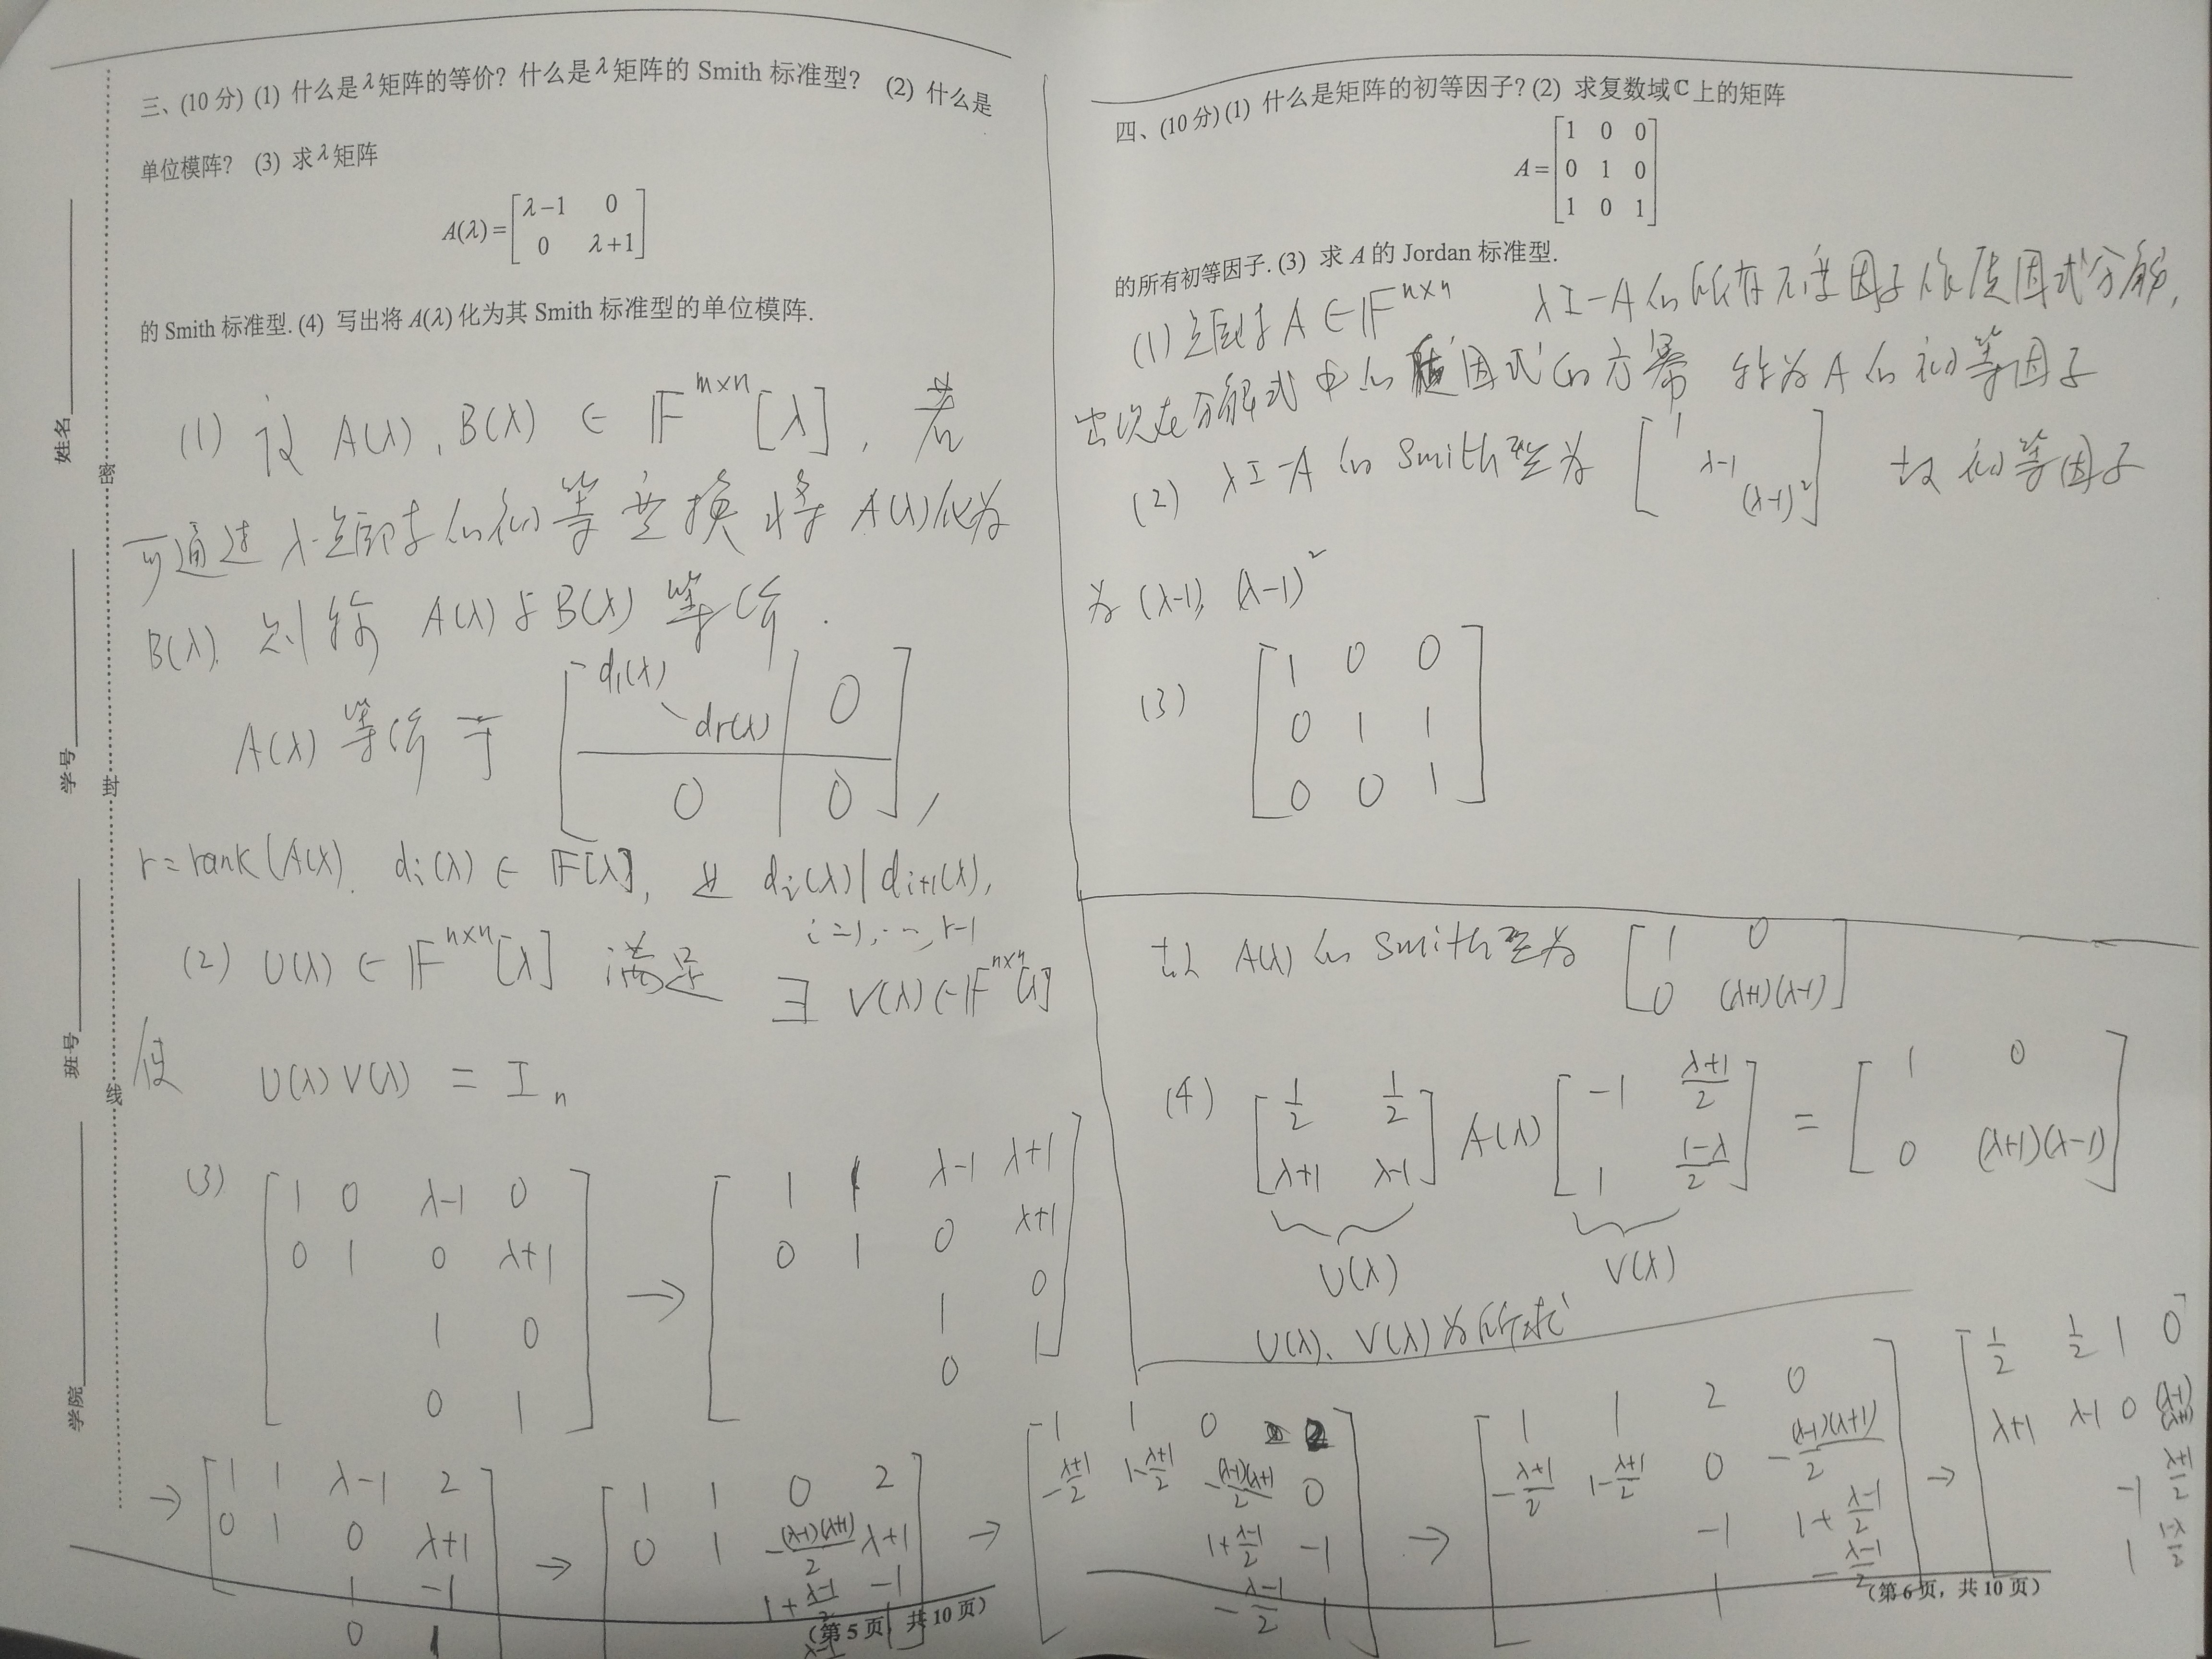 三、(10分) (1) 什么是λ矩阵的等价? 什么是λ矩阵的 Smith 标准型? (2) 什么是
单位模阵? (3) 求λ矩阵
A(λ)= [ λ-1 0
0 λ+1 ]
的 Smith 标准型. (4) 写出将 A(λ) 化为其 Smith 标准型的单位模阵.
(1) 设 A(λ), B(λ) ∈ F^{m×n}[λ], 若
可通过 λ-矩阵的初等变换将 A(λ)化为
B(λ). 则称 A(λ)与B(λ) 等价.
A(λ) 等价于 [ d₁(λ) ⋱ dr(λ) | 0
0 | 0 ],
r=rank(A(λ)). di(λ) ∈ F[λ], 且 di(λ)|di+1(λ),
i=1,…,r-1
(2) U(λ) ∈ F^{n×n}[λ] 满足 ∃ V(λ)∈F^{n×n}[λ]
使 U(λ)V(λ) = In
(3) [ 1 0 λ-1 0
0 1 0 λ+1
1 0
0 1 ]
→ [ 1 1 λ-1 λ+1
0 1 0 λ+1
1 0
0 1 ]
→ [ 1 1 λ-1 2
0 1 0 λ+1
1 -1
0 1 ]
→ [ 1 1 0 2
0 1 -(λ-1)(λ+1)/2 λ+1
1+(λ-1)/2 -1
姓名
学号
班号
学院
密
封
线
(第5页, 共10页)
四、(10分) (1) 什么是矩阵的初等因子? (2) 求复数域ℂ上的矩阵
A= [ 1 0 0
0 1 0
1 0 1 ]
的所有初等因子. (3) 求 A 的 Jordan 标准型.
(1) 矩阵 A∈F^{n×n} λI-A的所有不变因子作质因式分解,
出次在分解式中的质因式的方幂 称为A的初等因子
(2) λI-A 的 Smith型为 [ 1
λ-1
(λ-1)² ] 故初等因子
为 (λ-1), (λ-1)²
(3) [ 1 0 0
0 1 1
0 0 1 ]
故 A(λ) 的 Smith型为 [ 1 0
0 (λ+1)(λ-1) ]
(4) [ 1/2 1/2
λ+1 λ-1 ] A(λ) [ -1 (λ+1)/2
1 (1-λ)/2 ] = [ 1 0
0 (λ+1)(λ-1) ]
U(λ) V(λ)
U(λ)、V(λ)为所求
[ 1 1 0 2
-(λ+1)/2 1-(λ+1)/2 -(λ-1)(λ+1)/2 0
1+(λ-1)/2 -1
-(λ-1)/2 1 ]
→ [ 1 1 2 0
-(λ+1)/2 1-(λ+1)/2 0 -(λ-1)(λ+1)/2
-1 1+(λ-1)/2
1 -(λ-1)/2 ]
→ [ 1/2 1/2 1 0
λ+1 λ-1 0
-1 (λ+1)/2
1 (1-λ)/2
(第6页, 共10页)